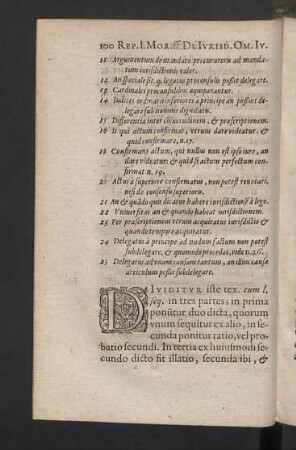 100 REP. l. MOR. ff. DE IVRISD. OM. IV.
11 Argumentum de mandato procuratoris ad mandatum iurisdictionis valet.
12 An speciale sit, quod legatus proconsulis possit delegare.
13 Cardinales proconsulibus aequiparantur.
14 Iudices ordinarii inferiores à principe an possint delegare sub nomine dignitatis.
15 Differentia inter consuetudinem, & praescriptionem.
16 Is qui actum confirmat, vtrum dare videatur, & quid confirmare, n. 17.
18 Confirmans actum, qui nullus non est ipso iure, an dare videatur: & quid si actum perfectum confirmat n. 19.
20 Actus à superiore confirmatus, non potest reuocari, nisi de consensu superioris.
21 An & quādo quis dicatur habere iurisdictionē à lege.
22 Vniuersitas an & quando habeat iurisdictionem.
23 Per praescriptionem vtrum acquiratur iurisdictio & quando tempore acquiratur.
24 Delegatus à principe ad nudum factum non potest subdelegare, & quomodo procedat, vide n. 26.
25 Delegatus ad vnam causam tantum, an illius causae articulum possit subdelegare.
DIVIDITVR iste tex. cum l.
seq. in tres partes; in prima
ponūtur duo dicta, quorum
vnum sequitur ex alio, in se-
cunda ponitur ratio, vel pro-
batio secundi. In tertia ex huiusmodi se-
cundo dicto fit illatio, secunda ibi, &